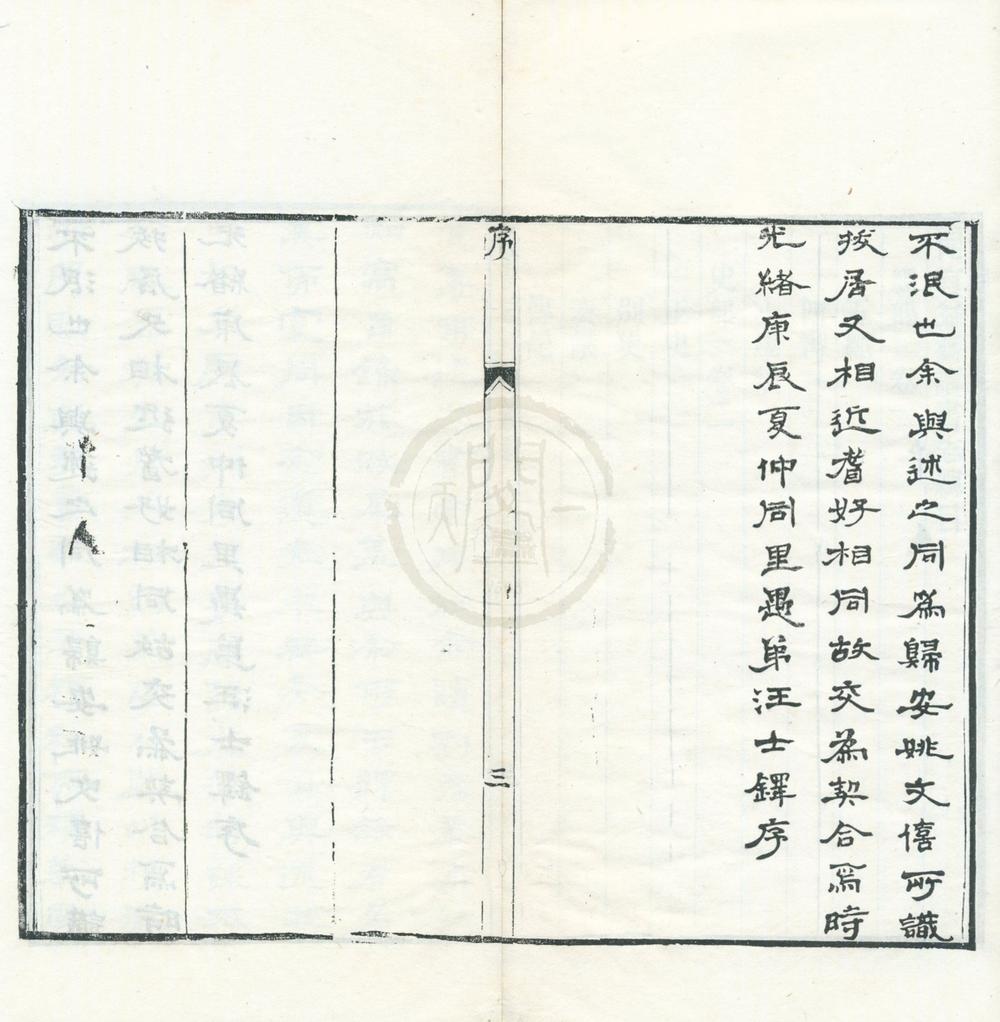 不泯也余與述之同爲歸安姚文僖所識
拔居又相近耆好相同故交爲契合焉時
光緒庚辰夏仲同里愚弟汪士鐸序
序
三